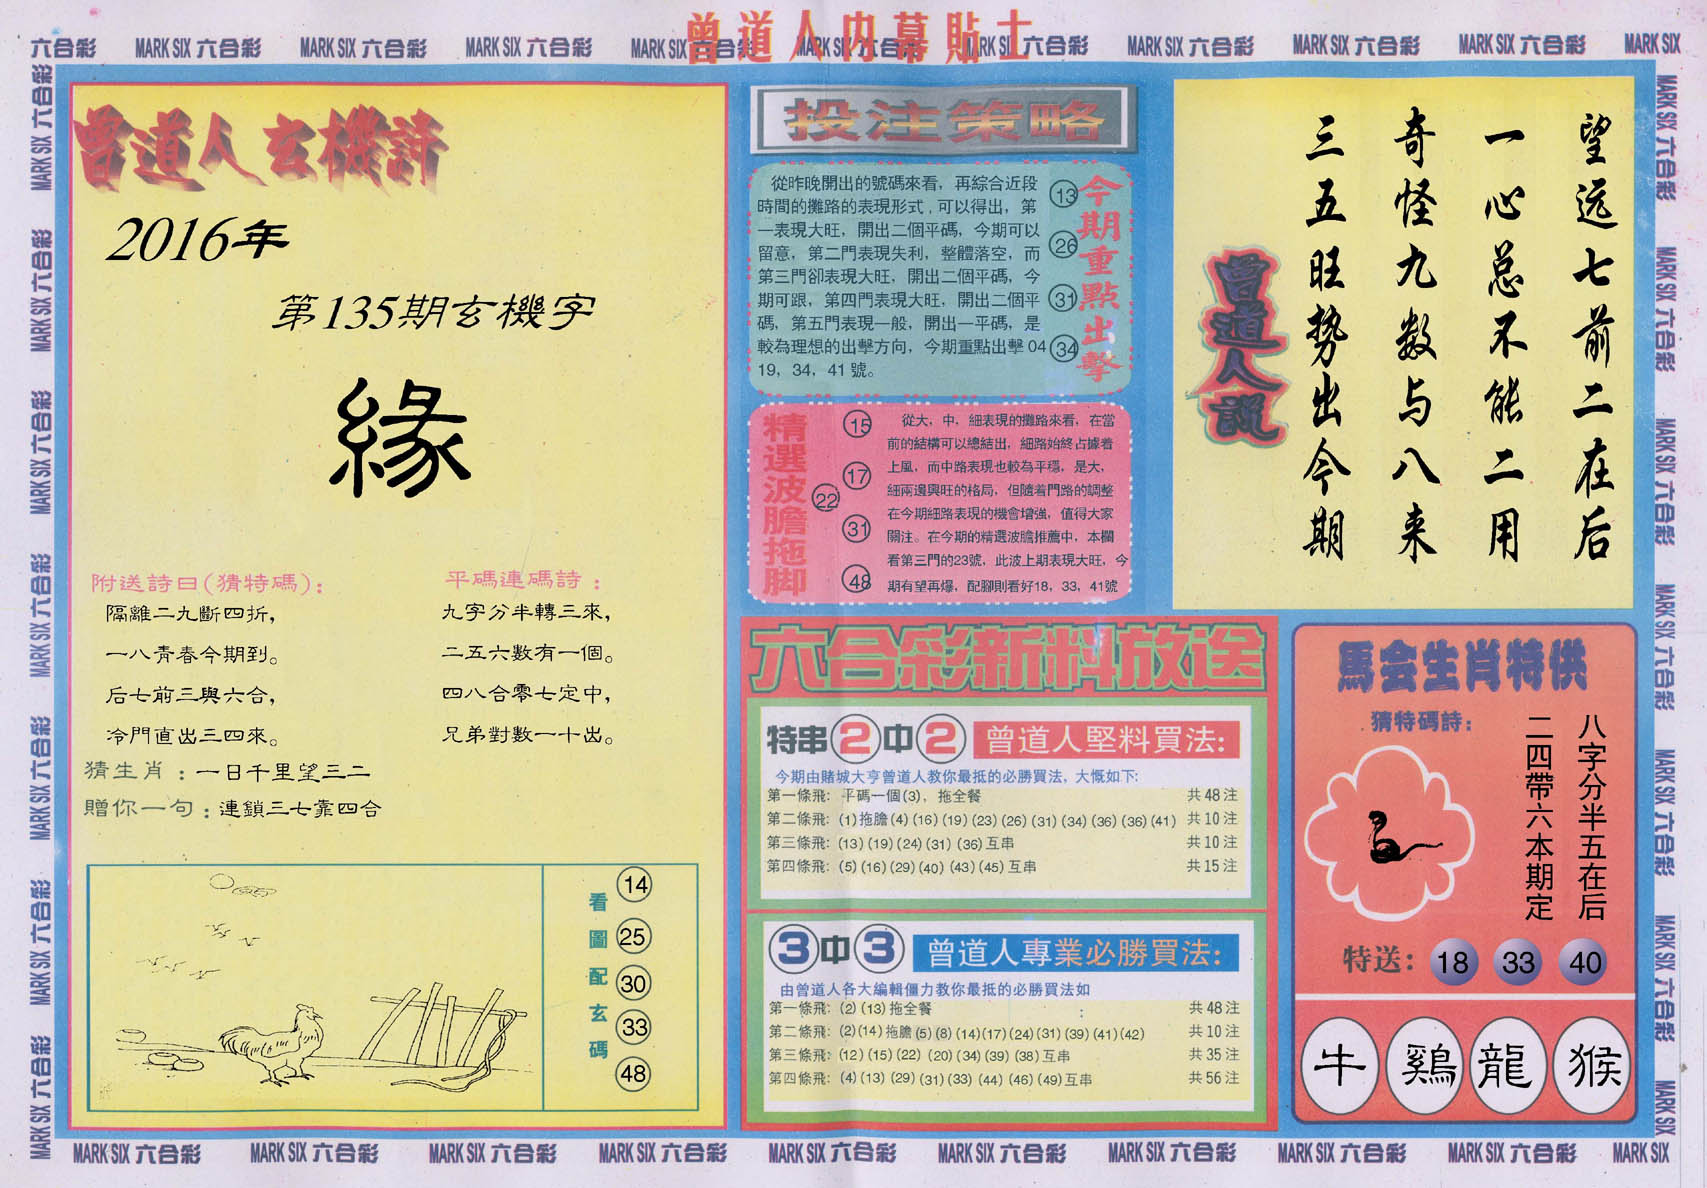 曾道人内幕貼士
六合彩 MARK SIX 六合彩 MARK SIX 六合彩 MARK SIX 六合彩 MARK SIX 六合彩 MARK SIX 六合彩 MARK SIX 六合彩 MARK SIX 六合彩 MARK SIX 六合彩 MARK SIX 六合彩 MARK SIX
曾道人玄機詩
2016年
第135期玄機字
緣
附送詩曰(猜特碼):
隔離二九斷四折,
一八青春今期到。
后七前三與六合,
冷門直出三四來。
平碼連碼詩:
九字分半轉三來,
二五六數有一個。
四八合零七定中,
兄弟對數一十出。
猜生肖:一日千里望三二
贈你一句:連鎖三七靠四合
看圖配玄碼
14
25
30
33
48
投注策略
從昨晚開出的號碼來看，再綜合近段
時間的攤路的表現形式,可以得出，第
一表現大旺，開出二個平碼，今期可以
留意，第二門表現失利，整體落空，而
第三門卻表現大旺，開出二個平碼，今
期可跟，第四門表現大旺，開出二個平
碼，第五門表現一般，開出一平碼，是
較為理想的出擊方向，今期重點出擊 04
19，34，41 號。
13
26
31
34
今期重點出擊
精選波膽拖脚
15
17
22
31
48
從大，中，細表現的攤路來看，在當
前的結構可以總結出，細路始終占據着
上風，而中路表現也較為平穩，是大，
細兩邊興旺的格局，但隨着門路的調整
在今期細路表現的機會增強，值得大家
關注。在今期的精選波膽推薦中，本欄
看第三門的23號，此波上期表現大旺，今
期有望再爆，配腳則看好18，33，41號
六合彩新料放送
特串2中2 曾道人堅料買法:
今期由賭城大亨曾道人教你最抵的必勝買法，大慨如下:
第一條飛: 平碼一個(3)，拖全餐 共 48 注
第二條飛: (1)拖膽(4)(16)(19)(23)(26)(31)(34)(36)(36)(41) 共 10 注
第三條飛: (13)(19)(24)(31)(36)互串 共 10 注
第四條飛: (5)(16)(29)(40)(43)(45)互串 共 15 注
3中3 曾道人專業必勝買法:
由曾道人各大編輯僵力教你最抵的必勝買法如
第一條飛: (2)(13)拖全餐 : 共 48 注
第二條飛: (2)(14)拖膽(5)(8)(14)(17)(24)(31)(39)(41)(42) 共 10 注
第三條飛: (12)(15)(22)(20)(34)(39)(38)互串 共 35 注
第四條飛: (4)(13)(29)(31)(33)(44)(46)(49)互串 共 56 注
望远七前二在后
一心总不能二用
奇怪九数与八来
三五旺势出今期
曾道人說
馬会生肖特供
猜特碼詩:
八字分半五在后
二四帶六本期定
特送: 18 33 40
牛 鷄 龍 猴
MARK SIX 六合彩 MARK SIX 六合彩 MARK SIX 六合彩 MARK SIX 六合彩 MARK SIX 六合彩 MARK SIX 六合彩 MARK SIX 六合彩 MARK SIX 六合彩 MARK SIX 六合彩 MARK SIX